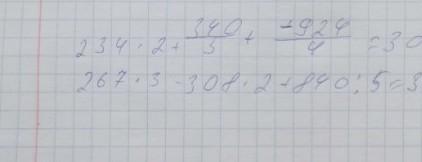 234 · 2 + 340/5 + -924/4 = 30
267 · 3 - 308 · 2 + 840 : 5 = 3